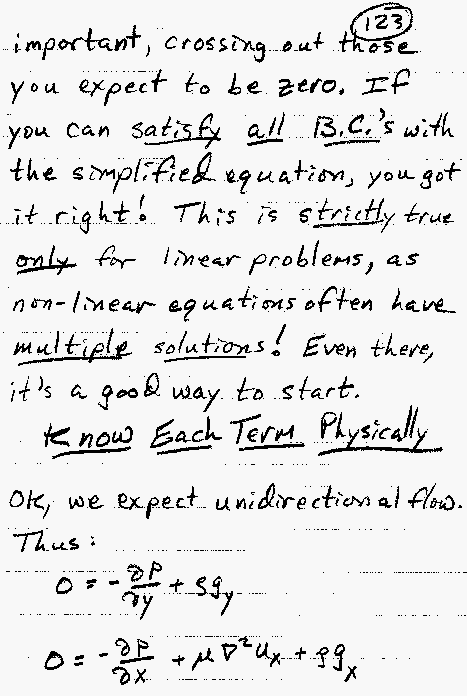 123
important, crossing out those
you expect to be zero. If
you can satisfy all B.C.'s with
the simplified equation, you got
it right! This is strictly true
only for linear problems, as
non-linear equations often have
multiple solutions! Even there,
it's a good way to start.
Know Each Term Physically
OK, we expect unidirectional flow.
Thus:
0 = -∂P/∂y + ρg_y
0 = -∂P/∂x + μ∇²u_x + ρg_x